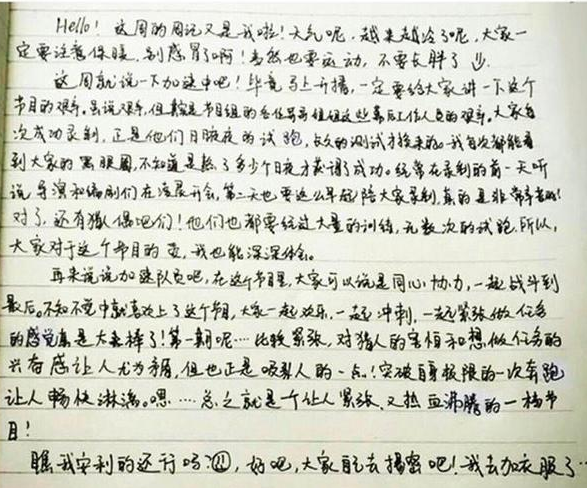 Hello! 这周的周记又是我啦!天气呢,越来越冷了呢,大家一
定要注意保暖,别感冒了啊!当然也要运动,不要长胖了
这周就说一下加速吧!毕竟马上开播,一定要给大家讲一下这个
节目的艰辛。虽说艰辛,但最是节目组的各位哥哥姐姐这些幕后工作人员的艰辛。大家每
次成功录制,正是他们日夜的试跑,长久的测试才换来的。我每次都能看
到大家的黑眼圈,不知道是熬了多少个日夜才获得了成功。经常在录制的前一天听
说导演和编剧们在凌晨开会,第二天也要这么早起陪大家录制,真的是非常辛苦啦!
对了,还有猎人他们!他们也都要经过大量的训练,无数次的试跑。所以,
大家对于这个节目的爱,我也能深深体会。
再来说说加速队员吧,在这个节目里,大家可以说是同心协力,一起战斗到
最后。不知不觉中就喜欢上了这个节目,大家一起欢乐,一起冲刺,一起紧张做任务
的感觉真是太棒了!第一期呢……比较紧张,对猎人的害怕和想做任务的
兴奋感让人尤为矛盾,但也正是吸引人的一点!突破自身极限的一次奔跑
让人畅快淋漓。嗯……总之就是一个让人紧张、又热血沸腾的一档节
目!
瞧我安利的还行吗?好吧,大家自己去揭密吧!我去加衣服了…